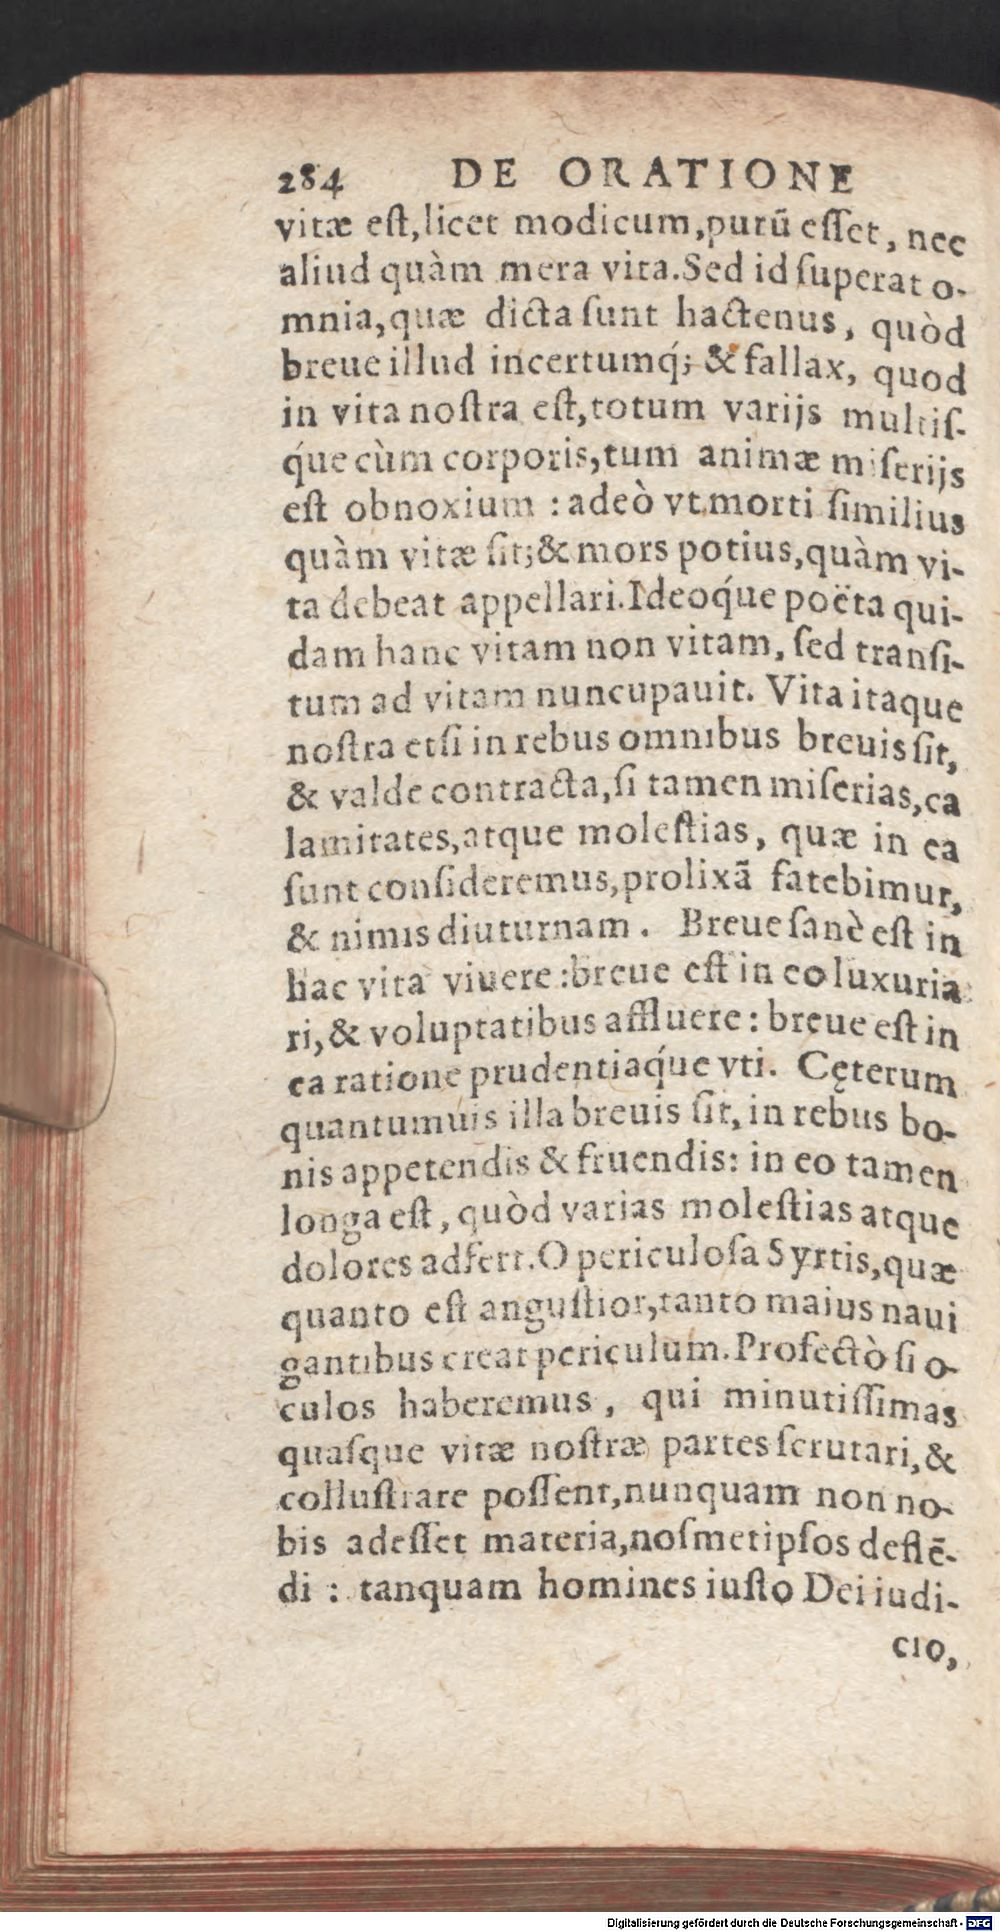 284 DE ORATIONE
vitæ eſt, licet modicum, purũ eſſet, nec
aliud quàm mera vita. Sed id ſuperat o-
mnia, quæ dicta ſunt hactenus, quòd
breue illud incertumq́; & fallax, quod
in vita noſtra eſt, totum varijs multiſ-
q́ue cùm corporis, tum animæ miſerijs
eſt obnoxium : adeò vt morti ſimilius
quàm vitæ ſit; & mors potius, quàm vi-
ta debeat appellari. Ideoq́ue poëta qui-
dam hanc vitam non vitam, ſed tranſi-
tum ad vitam nuncupauit. Vita itaque
noſtra etſi in rebus omnibus breuis ſit,
& valde contracta, ſi tamen miſerias, ca
lamitates, atque moleſtias, quæ in ea
ſunt conſideremus, prolixã fatebimur,
& nimis diuturnam. Breue ſanè eſt in
hac vita viuere : breue eſt in eo luxuria
ri, & voluptatibus affluere : breue eſt in
ea ratione prudentiaq́ue vti. Cęterum
quantumuis illa breuis ſit, in rebus bo-
nis appetendis & fruendis: in eo tamen
longa eſt, quòd varias moleſtias atque
dolores adfert. O periculoſa Syrtis, quæ
quanto eſt anguſtior, tanto maius naui
gantibus creat periculum. Profectò ſi o-
culos haberemus, qui minutiſſimas
quaſque vitæ noſtræ partes ſcrutari, &
colluſtrare poſſent, nunquam non no-
bis adeſſet materia, noſmetipſos deflẽ-
di : tanquam homines iuſto Dei iudi-
cio,
Digitalisierung gefördert durch die Deutsche Forschungsgemeinschaft - DFG